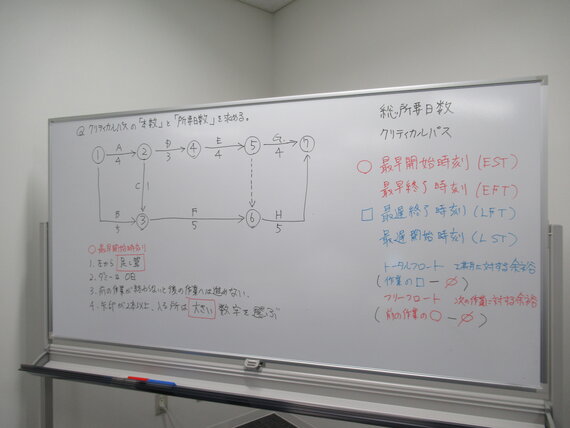 Q クリティカルパスの「本数」と「所要日数」を求める。
① A 4 ② D 3 ④ E 4 ⑤ G 4 ⑦
C 1
B 5 ③ F 5 ⑥ H 5
○最早開始時刻
1. 左から 足し算
2. ダミーは 0日
3. 前の作業が終わらないと後の作業へは進めない。
4. 矢印が2本以上、入る所は 大きい 数字を選ぶ
総所要日数
クリティカルパス
○ 最早開始時刻(EST)
最早終了時刻(EFT)
□ 最遅終了時刻(LFT)
最遅開始時刻(LST)
トータルフロート に対する余裕
(作業の□-○)
フリーフロート 次の作業に対する余裕
(前の作業の○-○)